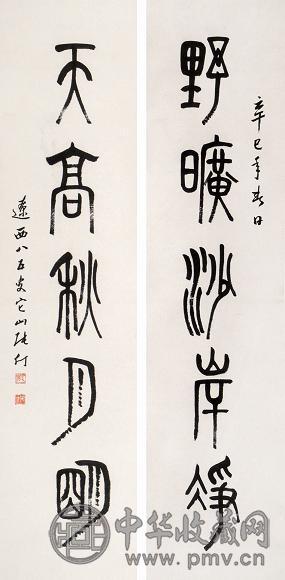 辛巳年春日
野曠沙岸淨
天高秋月明
遼西八五叟它山張仃
中华收藏网
www.pmv.cn